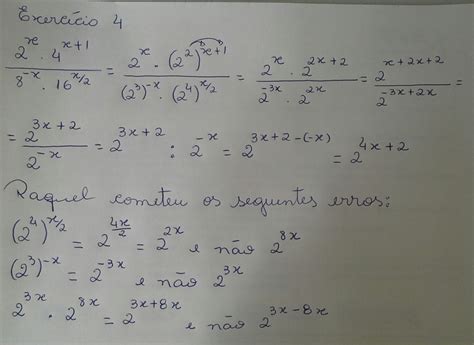 Exercício 4
2^x · 4^(x+1) / 8^(-x) · 16^(x/2) = 2^x · (2^2)^(x+1) / (2^3)^(-x) · (2^4)^(x/2) = 2^x · 2^(2x+2) / 2^(-3x) · 2^(2x) = 2^(x+2x+2) / 2^(-3x+2x) =
= 2^(3x+2) / 2^(-x) = 2^(3x+2) : 2^(-x) = 2^(3x+2-(-x)) = 2^(4x+2)
Raquel cometeu os seguintes erros:
(2^4)^(x/2) = 2^(4x/2) = 2^(2x) e não 2^(8x)
(2^3)^(-x) = 2^(-3x) e não 2^(3x)
2^(3x) · 2^(8x) = 2^(3x+8x) e não 2^(3x-8x)